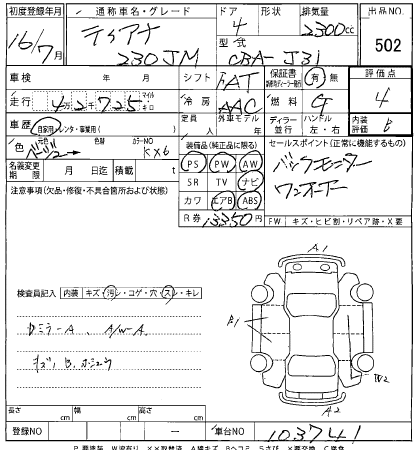 初度登録年月 通称車名・グレード ドア 形状 排気量 出品NO
16/7月 ティアナ 230JM 4 2300cc 502
型式 CBA-J31
車検 年 月 シフト FAT 保証書 有 無 評価点
走行 42千725 キロ 冷房 AAC 燃料 G 4
車歴 自家用・レンタ・事業用( ) 定員 人 外車モデル 年 ディーラー 並行 ハンドル 左・右 内装評価 B
色 ベージュ 色替 カラーNO KX6
装備品(純正品に限る) セールスポイント(正常に機能するもの)
名義変更期限 月 日迄 積載 t
PS PW AW バックモニター
注意事項(欠品・修復・不具合箇所および状態)
SR TV ナビ ワンオーナー
カワ エアB ABS
R券 13350円 FW キズ・ヒビ割・リペア跡・X要
A1
検査員記入 内装 キズ・汚レ・コゲ・穴・スレ・キレ
A1
ドミラーA、A/W-A
キズ、B、ホシュウ
W2
A2
長さ cm 幅 cm 高さ cm
登録NO 車台NO 103741